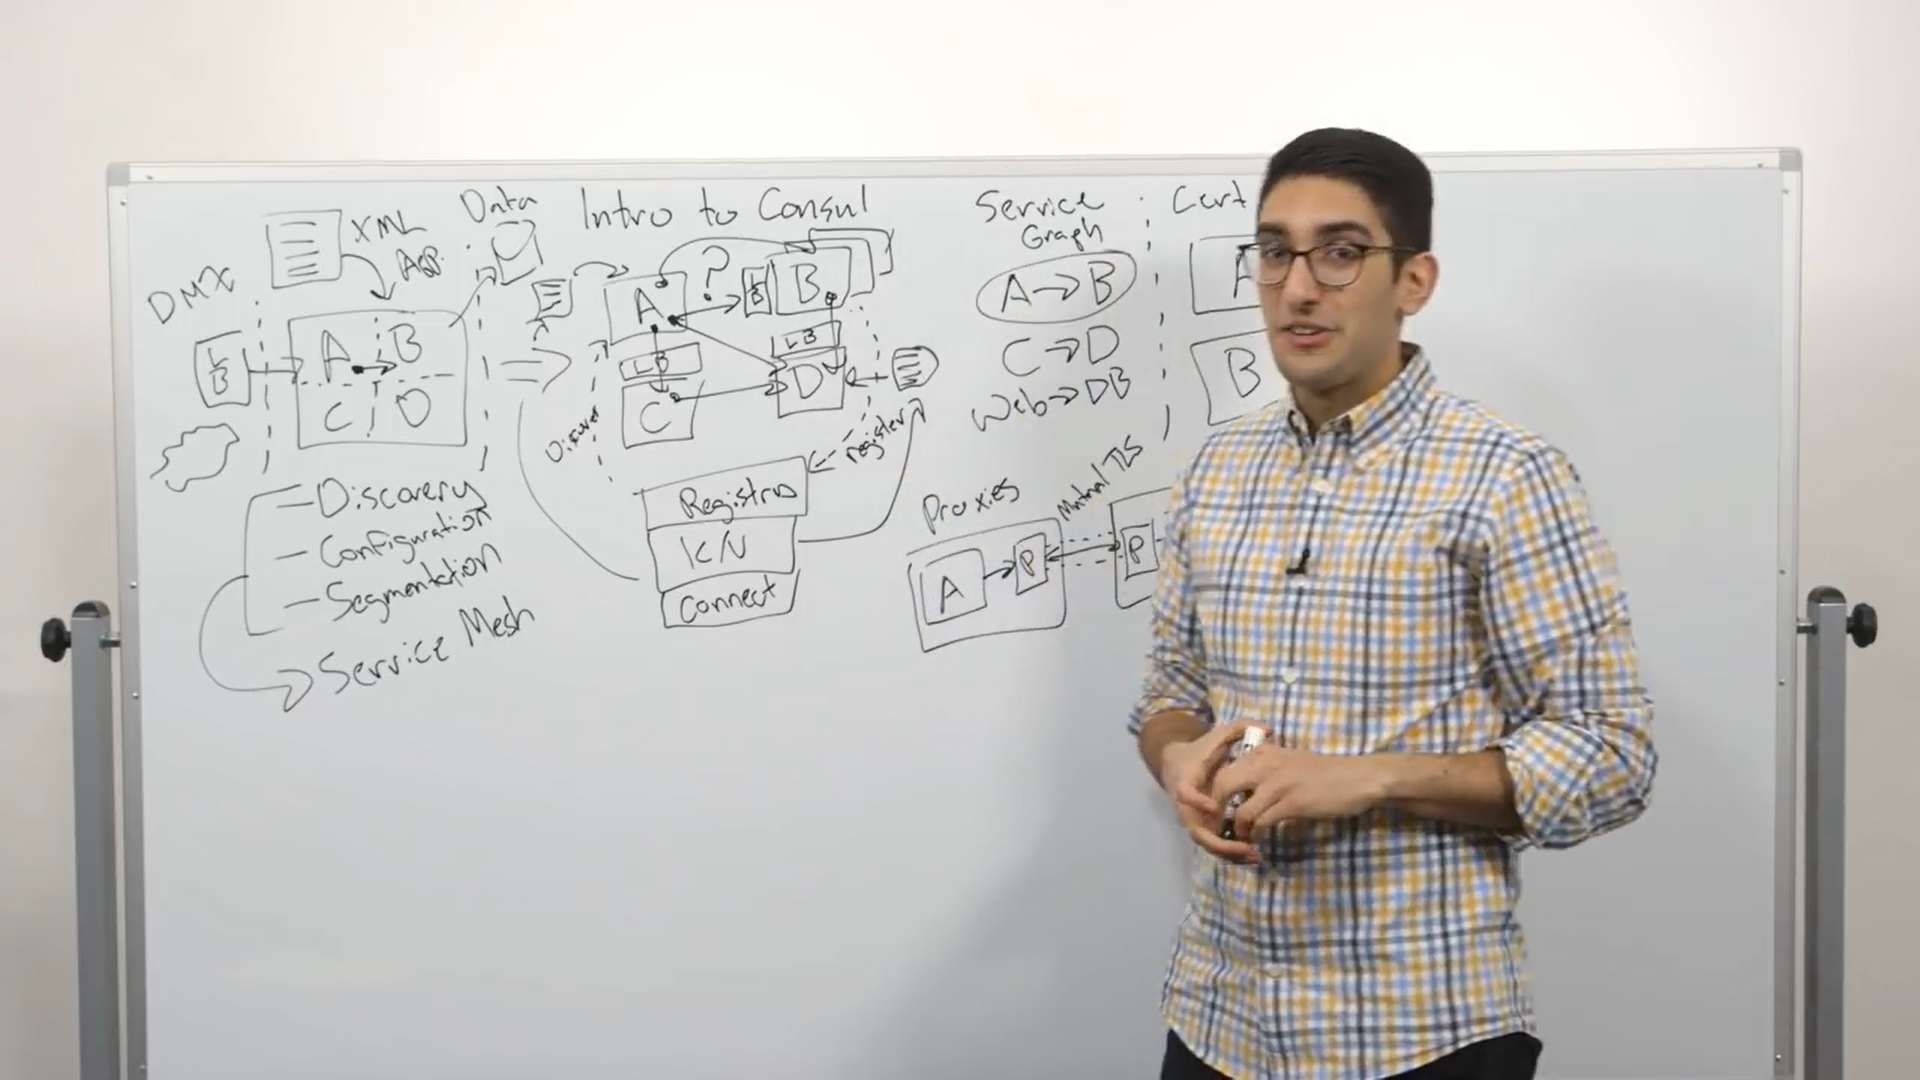 DMZ
XML
App
Data
LB
A
B
C
D
Discovery
Configuration
Segmentation
Service Mesh
Intro to Consul
A
?
LB
B
LB
LB
C
D
Discover
register
Registry
K/V
Connect
Service
Graph
A → B
C → D
Web → DB
Cert
A
B
Proxies
Mutual TLS
A
P
P